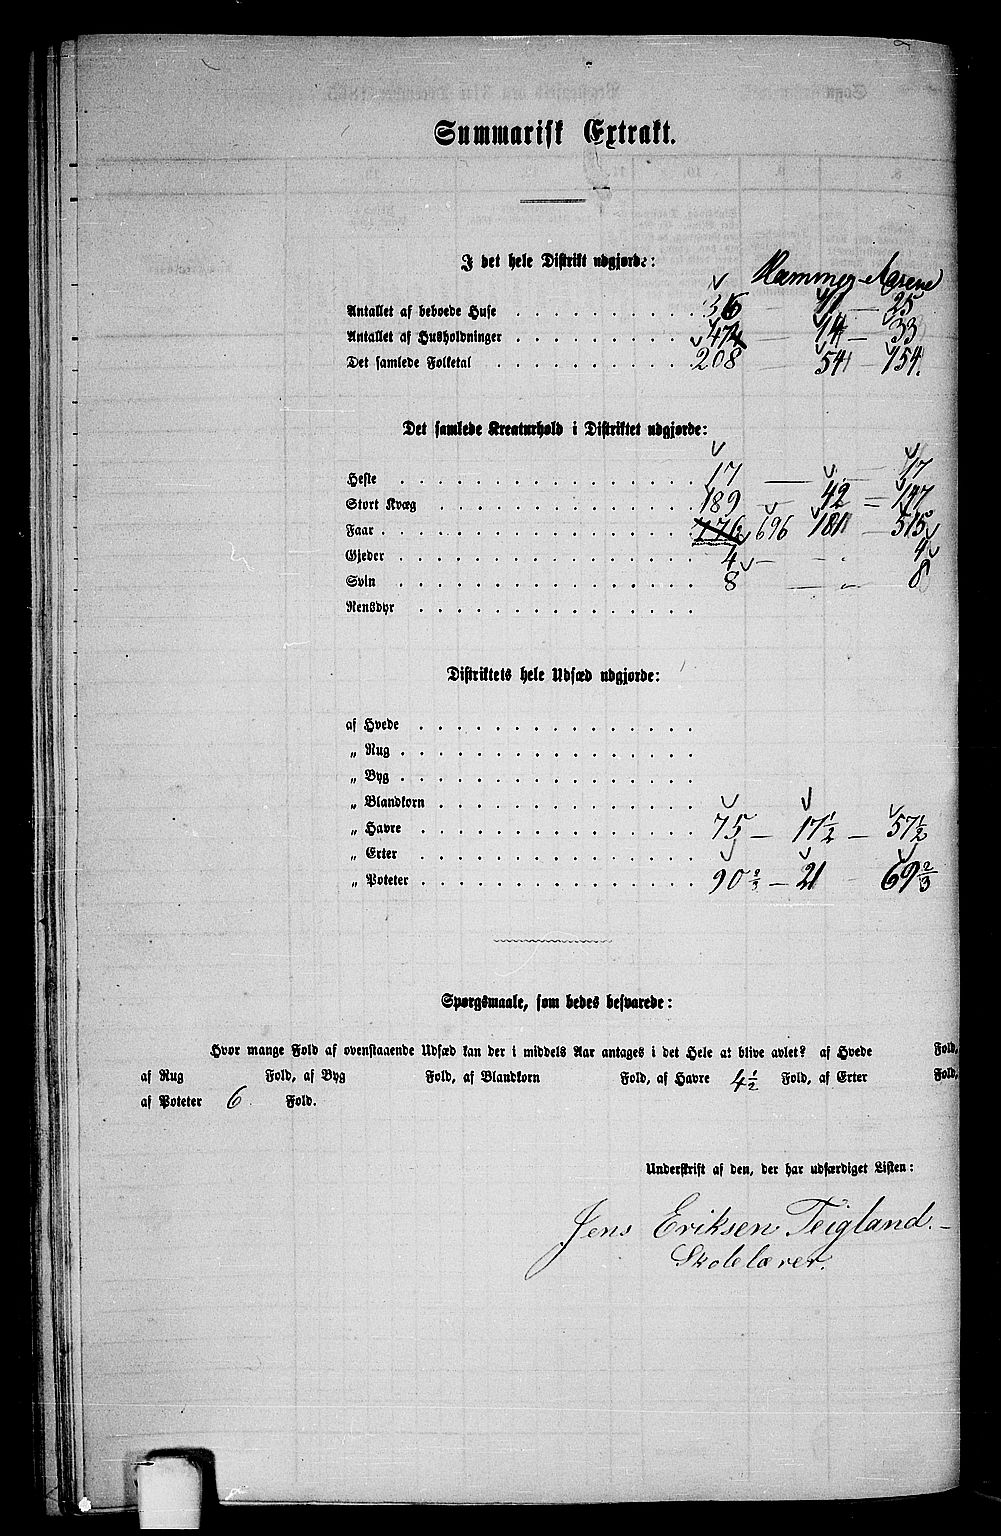 Summarisk Extrakt.
I det hele Distrikt udgjorde:
Antallet af beboede Huse 36 — 11 — 25
Antallet af Husholdninger 47 — 14 — 33
Det samlede Folketal 208 — 54 — 154.
Det samlede Kreaturhold i Distriktet udgjorde:
Heste 17 — " — 17
Stort Kvæg 189 — 42 = 147
Faar 776 696 181 — 515
Gjeder 4 — " 4
Svin 8 — " — 8
Rensdyr
Distriktets hele Udsæd udgjorde:
af Hvede
„ Rug
„ Byg
„ Blandkorn
„ Havre 75 — 17½ — 57½
„ Erter
„ Poteter 90⅔ — 21 69⅔
Spørgsmaale, som bedes besvarede:
Hvor mange Fold af ovenstaaende Udsæd kan der i middels Aar antages i det Hele at blive avlet? af Hvede Fold,
af Rug Fold, af Byg Fold, af Blandkorn Fold, af Havre 4½ Fold, af Erter Fold,
af Poteter 6 Fold.
Underskrift af den, der har udfærdiget Listen:
Jens Eriksen Teigland.
Skolelærer.